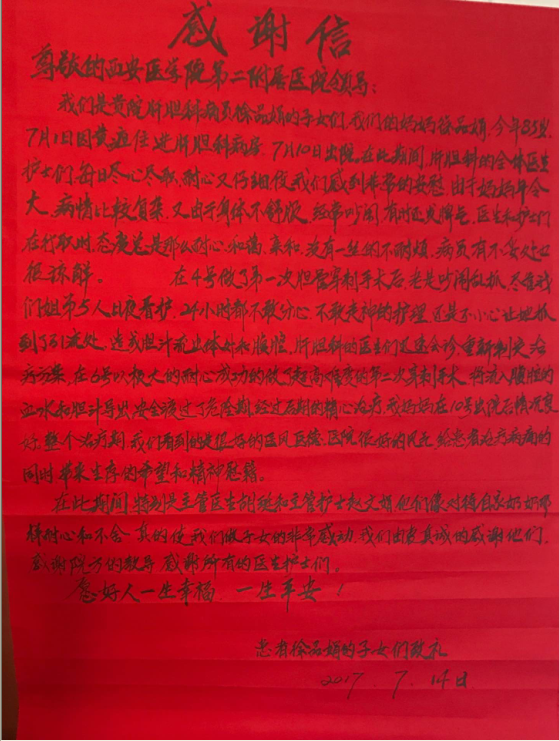 感谢信
尊敬的西安医学院第二附属医院领导：
我们是贵院肝胆科病员徐品娟的子女们，我们的妈妈徐品娟，今年85岁
7月1日因黄疸住进肝胆科病房 7月10日出院。在此期间，肝胆科的全体医生
护士们，每日尽心尽职，耐心又仔细使我们感到非常的安慰，由于妈妈年令
大，病情比较复杂，又由于身体不舒服，经常吵闹，有时还发脾气，医生和护士们
在行取时，态度总是那么耐心、和蔼、亲和，没有一丝的不耐烦，病员有不妥处也
很谅解。 在4号做了第一次胆管穿刺手术后，老是吵闹乱抓，尽管我
们姐弟5人日夜看护，24小时都不敢分心，不敢走神的护理，还是不小心让她抓
到了引流处，造成胆汁流出体外和腹腔，肝胆科的医生们迅速会诊，重新制定治
疗方案，在6号以极大的耐心成功的做了超高难度的第二次穿刺手术，将流入腹腔的
血水和胆汁导出，安全渡过了危险期，经过后期的精心治疗，我妈妈在10号出院后情况良
好，整个治疗期，我们看到的是很好的医风医德，医院很好的风气，给患者治疗病痛的
同时带来生存的希望和精神慰籍。
在此期间，特别是主管医生胡 和主管护士赵文娟他们像对待自家奶奶那
样耐心和不舍，真的使我们做子女的非常感动，我们由衷真诚的感谢他们。
感谢院方的教导，感谢所有的医生护士们。
愿好人一生幸福 一生平安！
患者徐品娟的子女们敬礼
2017.7.14日